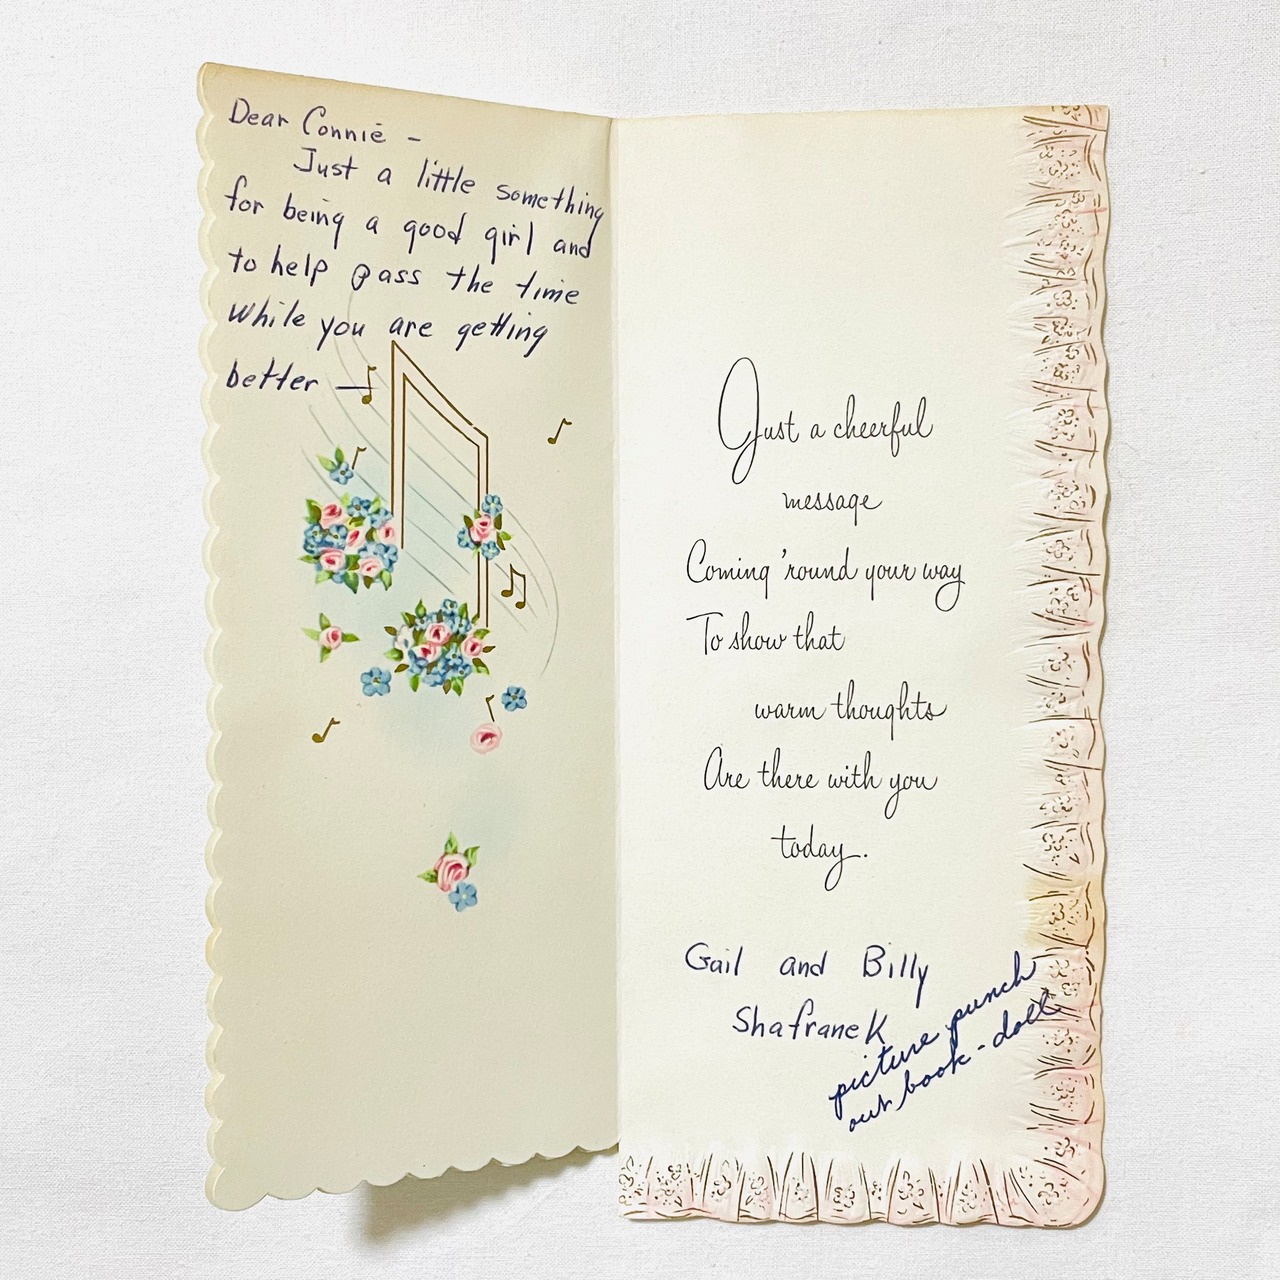 Dear Connie -
Just a little something
for being a good girl and
to help pass the time
while you are getting
better —
Just a cheerful
message
Coming 'round your way
To show that
warm thoughts
Are there with you
today.
Gail and Billy
Shafranek
picture punch
out book - doll